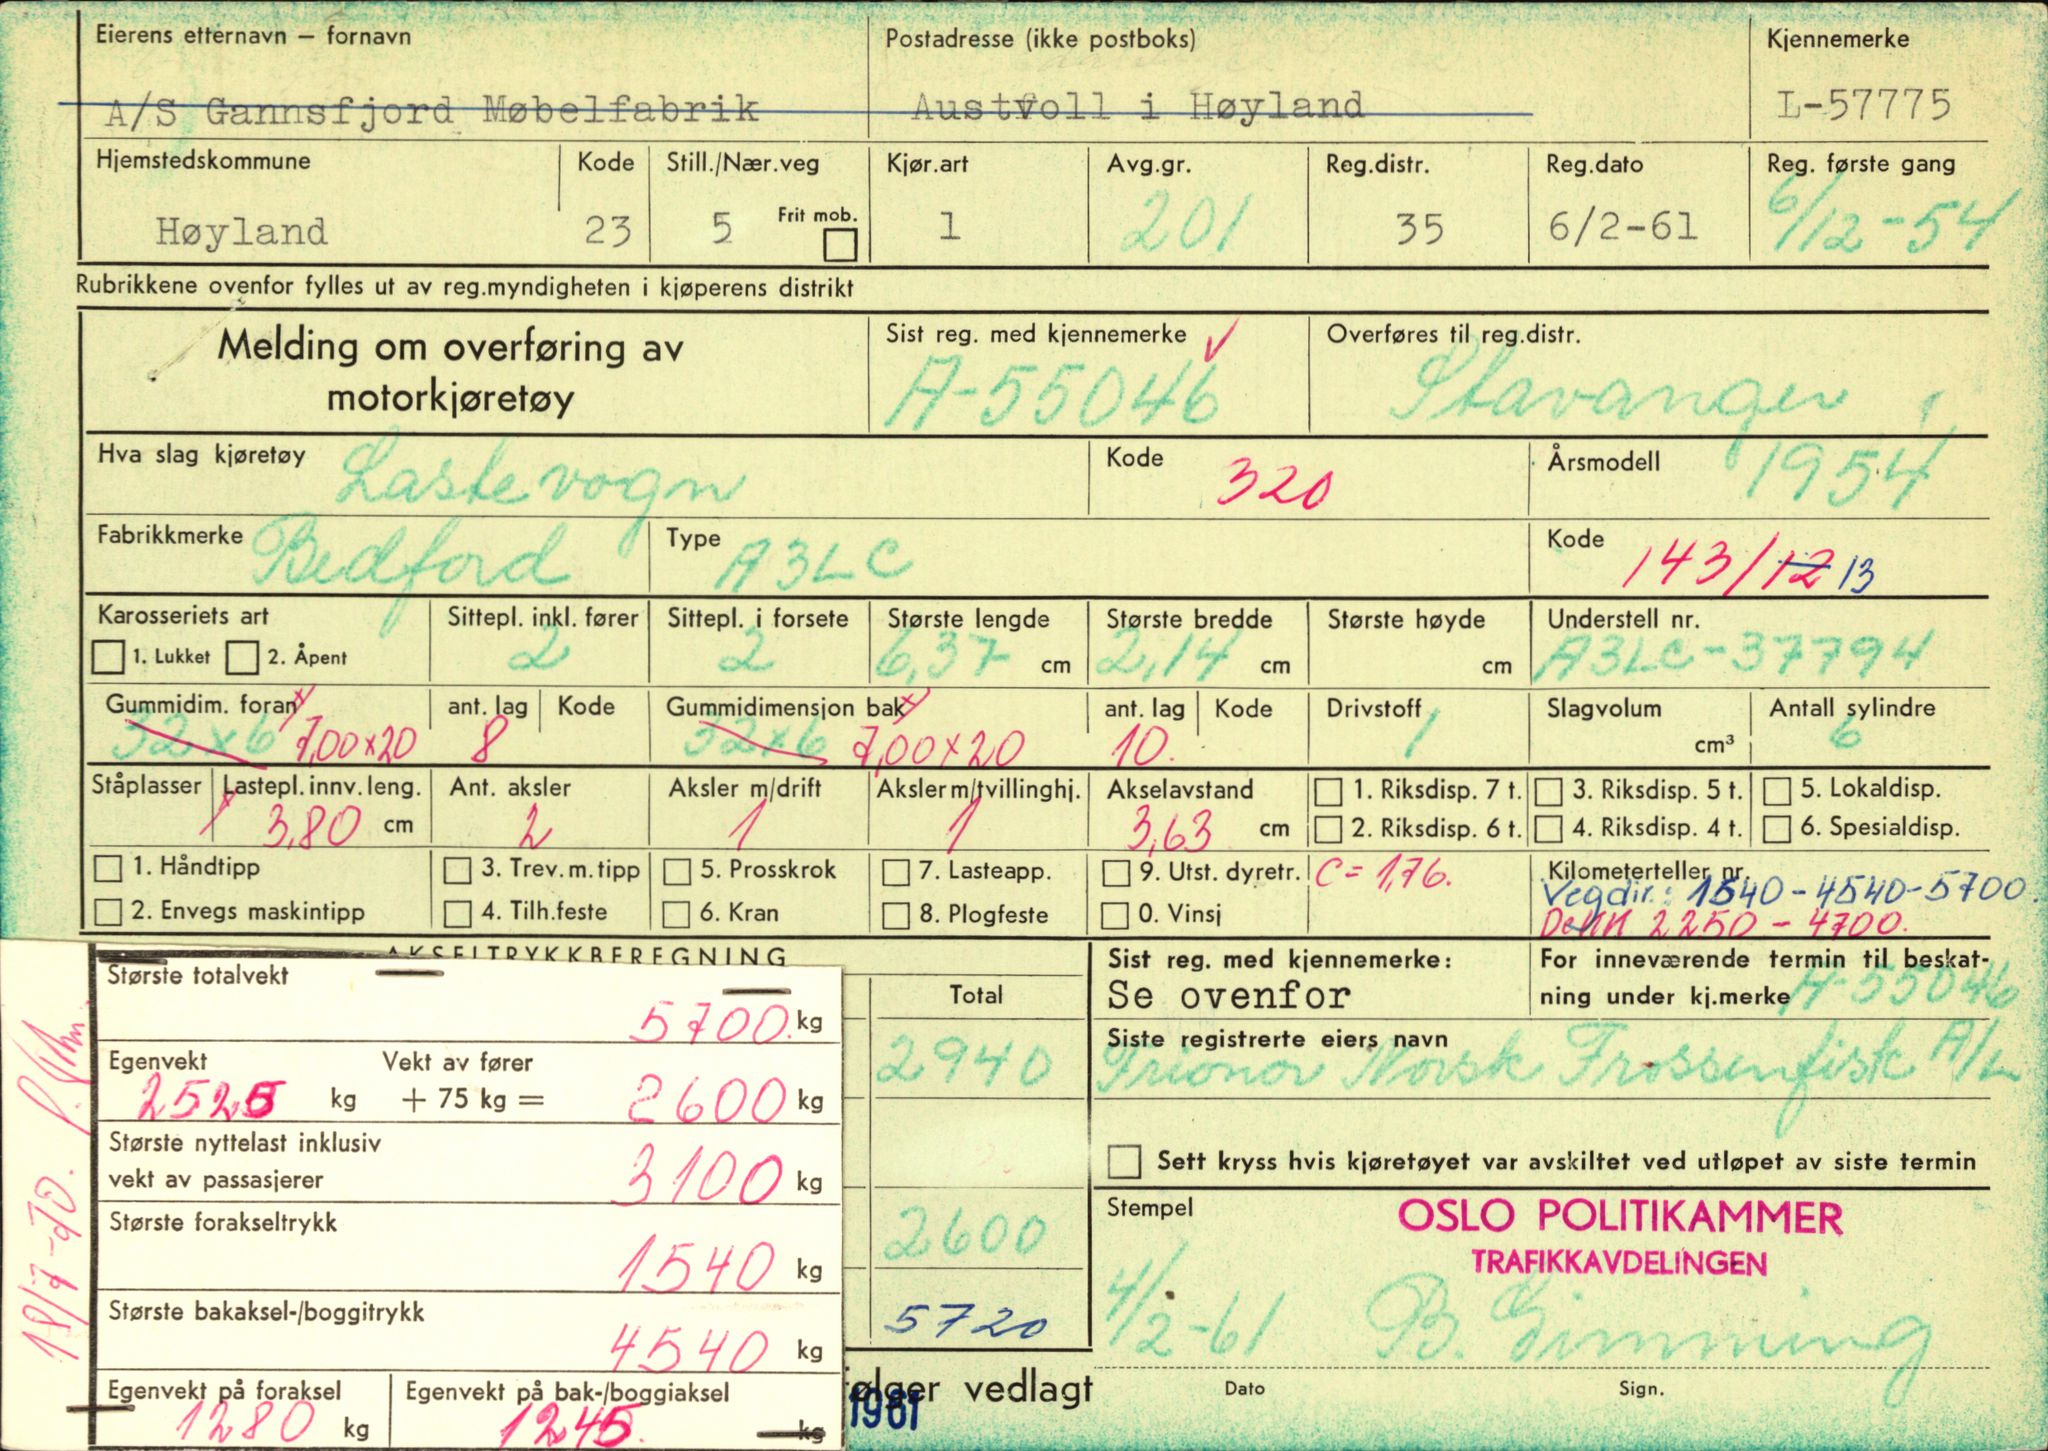 Eierens etternavn — fornavn
Postadresse (ikke postboks)
Kjennemerke
A/S Gannsfjord Møbelfabrik
Austvoll i Høyland
L-57775
Hjemstedskommune
Kode
Still./Nær.veg
Kjør.art
Avg.gr.
Reg.distr.
Reg.dato
Reg. første gang
Høyland
23
5
Frit mob.
1
201
35
6/2-61
6/12-54
Rubrikkene ovenfor fylles ut av reg.myndigheten i kjøperens distrikt
Melding om overføring av
motorkjøretøy
Sist reg. med kjennemerke
A-55046
Overføres til reg.distr.
Stavanger
Hva slag kjøretøy
Lastevogn
Kode
320
Årsmodell
1954
Fabrikkmerke
Bedford
Type
A3LC
Kode
143/12 13
Karosseriets art
Sittepl. inkl. fører
Sittepl. i forsete
Største lengde
Største bredde
Største høyde
Understell nr.
1. Lukket
2. Åpent
2
2
6,37 cm
2,14 cm
cm
A3LC-37794
Gummidim. foran
ant. lag
Kode
Gummidimensjon bak
ant. lag
Kode
Drivstoff
Slagvolum
Antall sylindre
32x6 7,00x20
8
32x6 7,00x20
10.
1
cm³
6
Ståplasser
Lastepl. innv. leng.
Ant. aksler
Aksler m/drift
Aksler m/tvillinghj.
Akselavstand
1. Riksdisp. 7 t.
3. Riksdisp. 5 t.
5. Lokaldisp.
3,80 cm
2
1
1
3,63 cm
2. Riksdisp. 6 t.
4. Riksdisp. 4 t.
6. Spesialdisp.
1. Håndtipp
3. Trev. m. tipp
5. Prosskrok
7. Lasteapp.
9. Utst. dyretr.
C = 1,76.
Kilometerteller nr.
Vegdir.: 1540-4540-5700.
2. Envegs maskintipp
4. Tilh.feste
6. Kran
8. Plogfeste
0. Vinsj
2250 - 4700.
AKSELTRYKKBEREGNING
Sist reg. med kjennemerke:
Se ovenfor
For inneværende termin til beskat-
ning under kj.merke A-55046
Total
2940
Siste registrerte eiers navn
Frionor Norsk Frossenfisk A/L
Største totalvekt
5700. kg
Egenvekt
Vekt av fører
2525 kg
+ 75 kg =
2600 kg
Største nyttelast inklusiv
vekt av passasjerer
3100 kg
Sett kryss hvis kjøretøyet var avskiltet ved utløpet av siste termin
Største forakseltrykk
1540 kg
2600
Stempel
OSLO POLITIKAMMER
TRAFIKKAVDELINGEN
Største bakaksel-/boggitrykk
4540 kg
5720
4/2-61
B. Gimming
Egenvekt på foraksel
1280 kg
Egenvekt på bak-/boggiaksel
1245. kg
følger vedlagt
1961
Dato
Sign.
18/7-70.